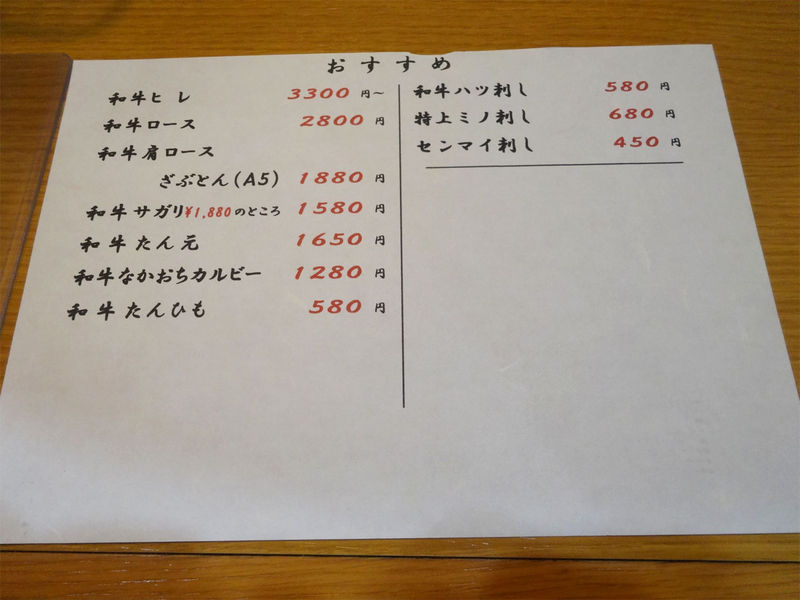 おすすめ
和牛ヒレ 3300円~
和牛ロース 2800円
和牛肩ロース
ざぶとん(A5) 1880円
和牛サガリ¥1,880のところ 1580円
和牛たん元 1650円
和牛なかおちカルビー 1280円
和牛たんひも 580円
和牛ハツ刺し 580円
特上ミノ刺し 680円
センマイ刺し 450円